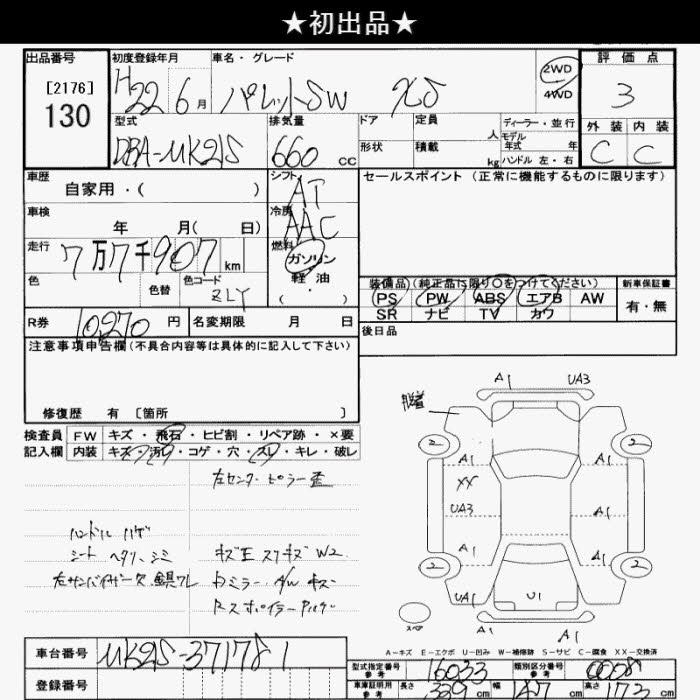 ★初出品★
出品番号
[2176]
130
初度登録年月
H22 6月
車名・グレード
パレットSW XS
2WD
4WD
評価点
3
外装 内装
C C
型式
DBA-MK21S
排気量
660 cc
ドア
形状
定員
人
積載
kg
ディーラー・並行
モデル
年式 年
ハンドル 左・右
車歴
自家用・( )
シフト
AT
セールスポイント (正常に機能するものに限ります)
車検
年 月( 日)
冷房
AAC
走行
7万7千907 km
燃料
ガソリン
軽油
( ・ )
色
色替
色コード
ZLY
装備品 (純正品に限り○をつけてください)
PS PW ABS エアB AW
SR ナビ TV カワ
新車保証書
有・無
R券
10,270 円
名変期限 月 日
後日品
注意事項申告欄(不具合内容等は具体的に記入して下さい)
修復歴 有 [箇所 ]
検査員
記入欄
FW
キズ・飛石・ヒビ割・リペア跡・×要
内装
キズ・汚レ・コゲ・穴・スレ・キレ・破レ
左センターピラー歪
ハンドル ハゲ
シート ヘタリ、シミ
左サンバイザー欠 鏡ワレ
キズ王 スリキズ W2
右ミラー、A/W キズ
A1 UA3
脱着
2 2
A1 A1
XX
UA3 A1
A1 A1
2 2
UA1 U1 A1
A1 A1
スペア
A-キズ E-エクボ U-凹み W-補修跡 S-サビ C-腐食 XX-交換済
車台番号
MK21S-371781
登録番号
型式指定番号
参考
16033
類別区分番号
参考
0008
車庫証明用
参考
長さ
339 cm
幅
147 cm
高さ
172 cm